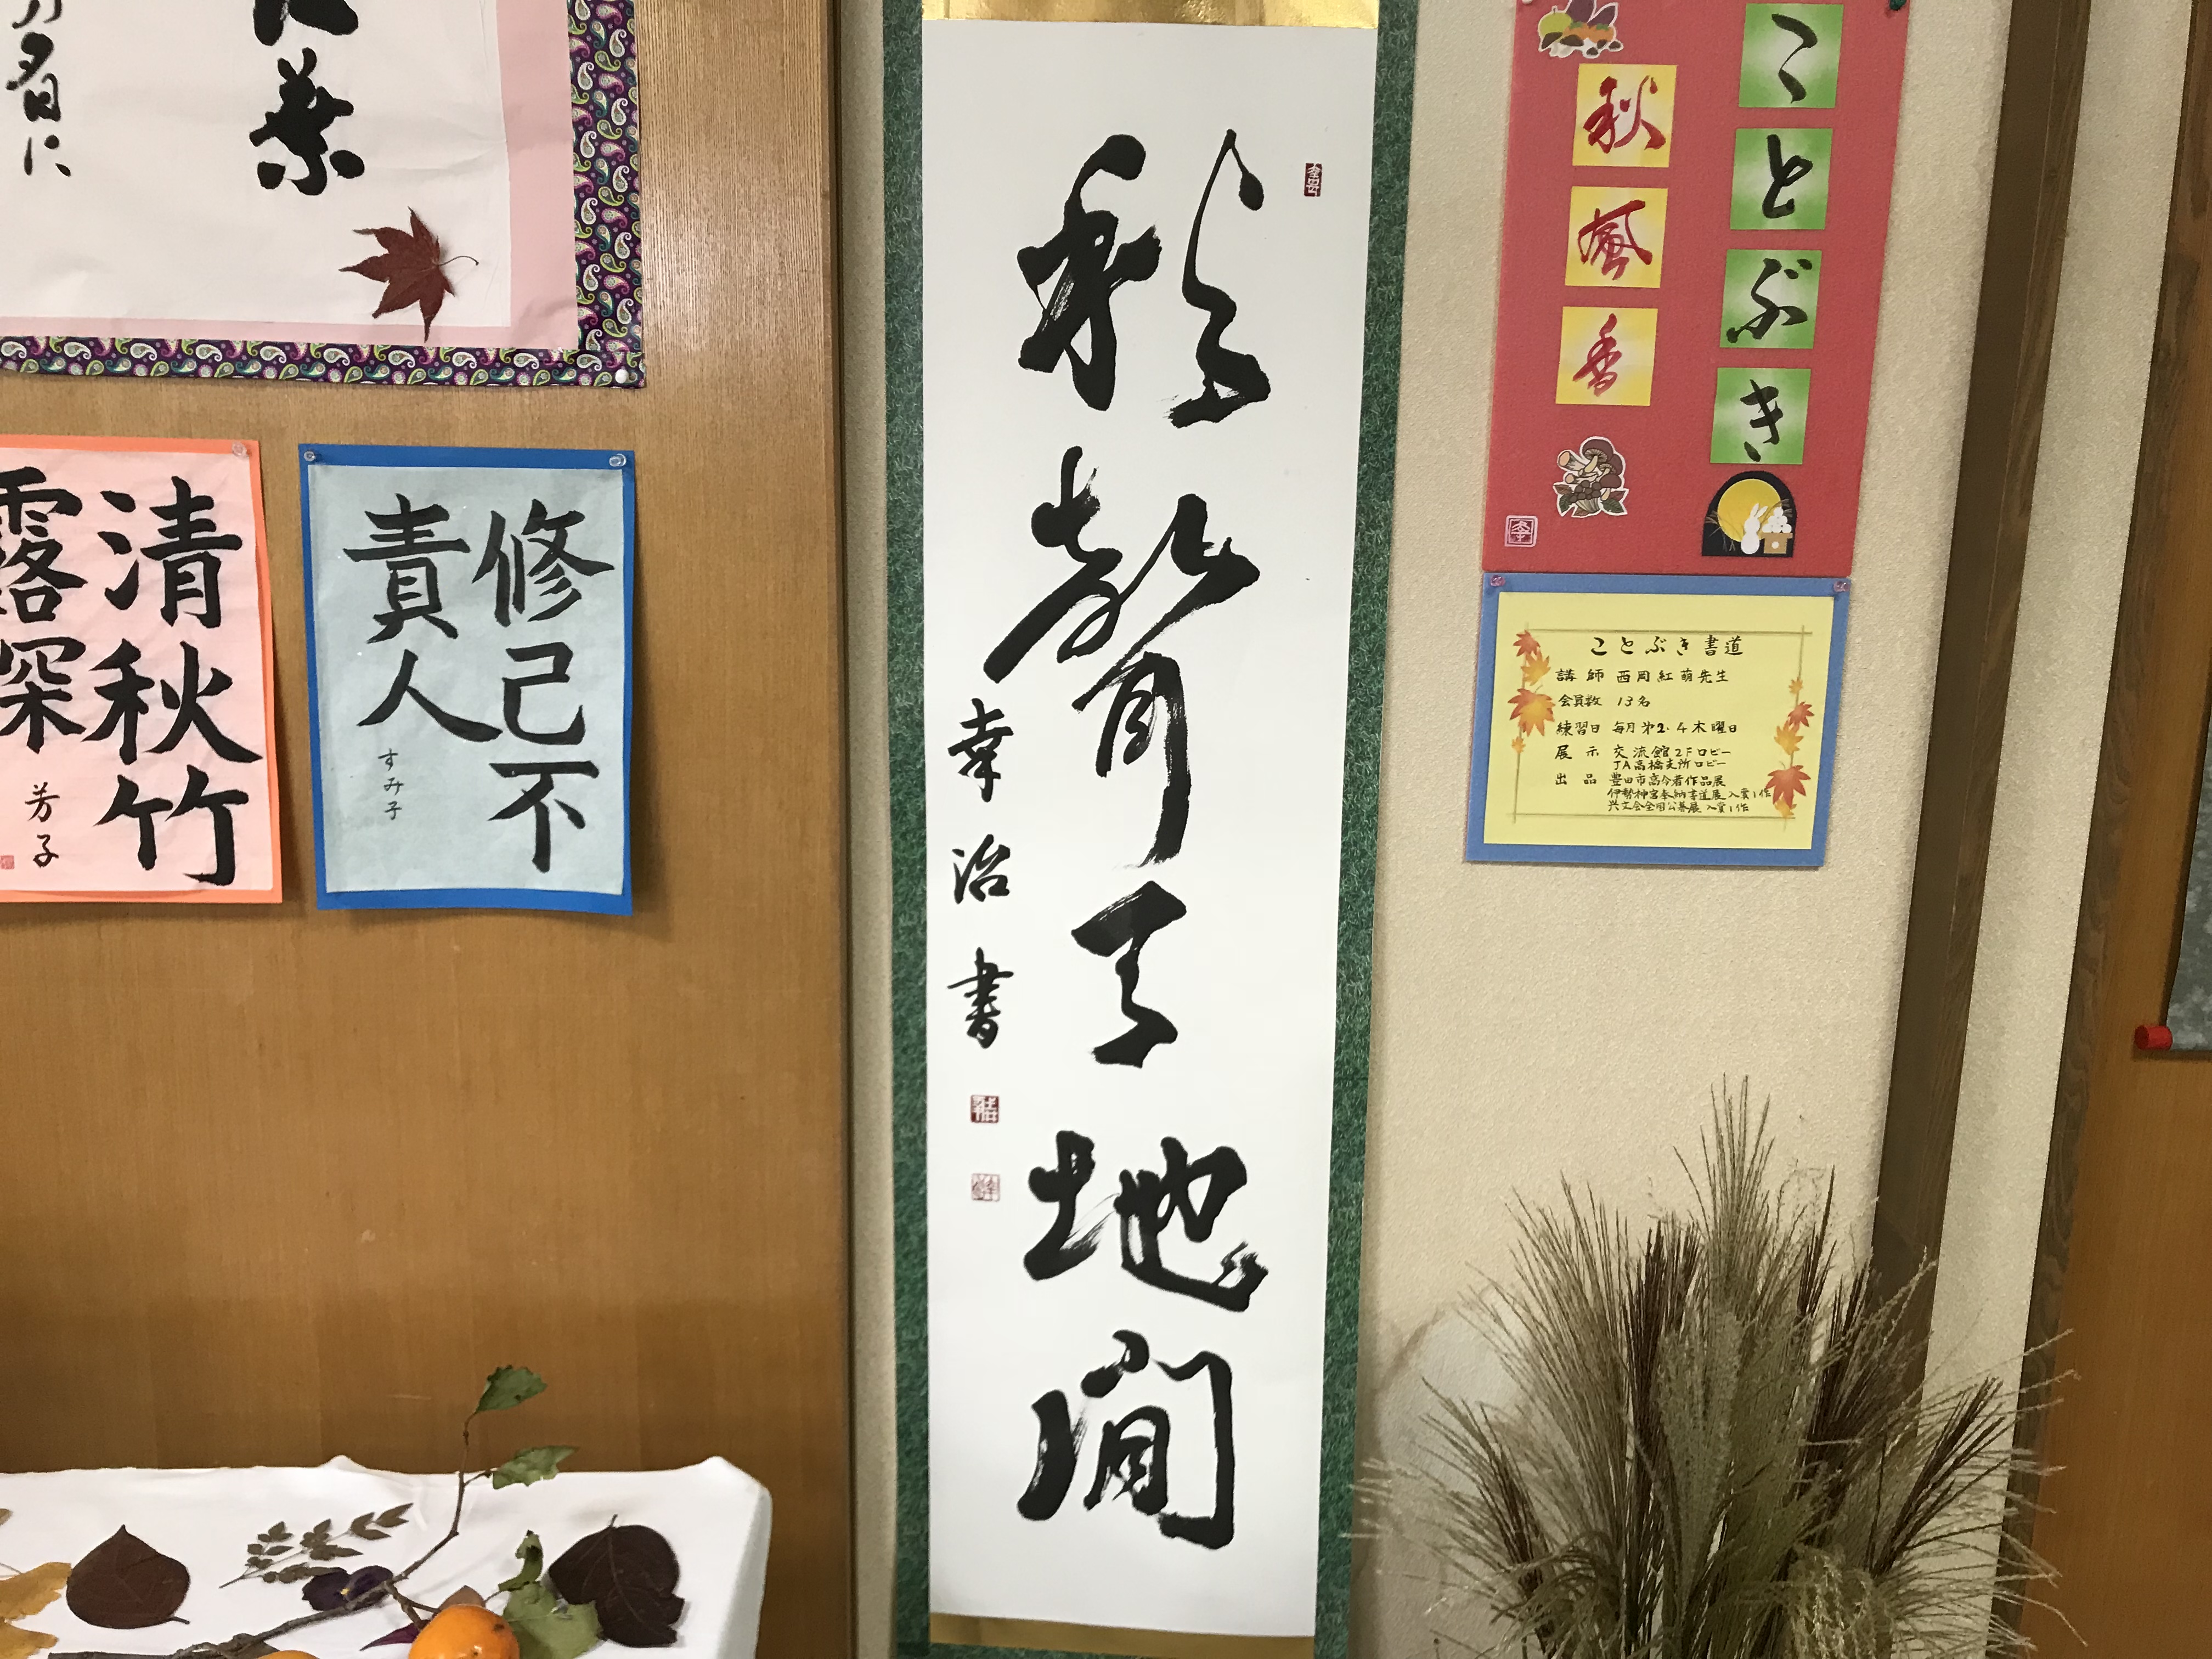 ことぶき
秋風香
ことぶき書道
講師 西岡紅萌先生
会員数 13名
練習日 毎月第2.4木曜日
展示 交流館2Fロビー
JA高橋支所ロビー
出品 豊田市高令者作品展
伊勢神宮奉納書道展入賞1作
興文会全国公募展入賞1作
秋聲天地間
幸治書
修己不
責人
すみ子
清秋竹
露深
芳子
葉
名に